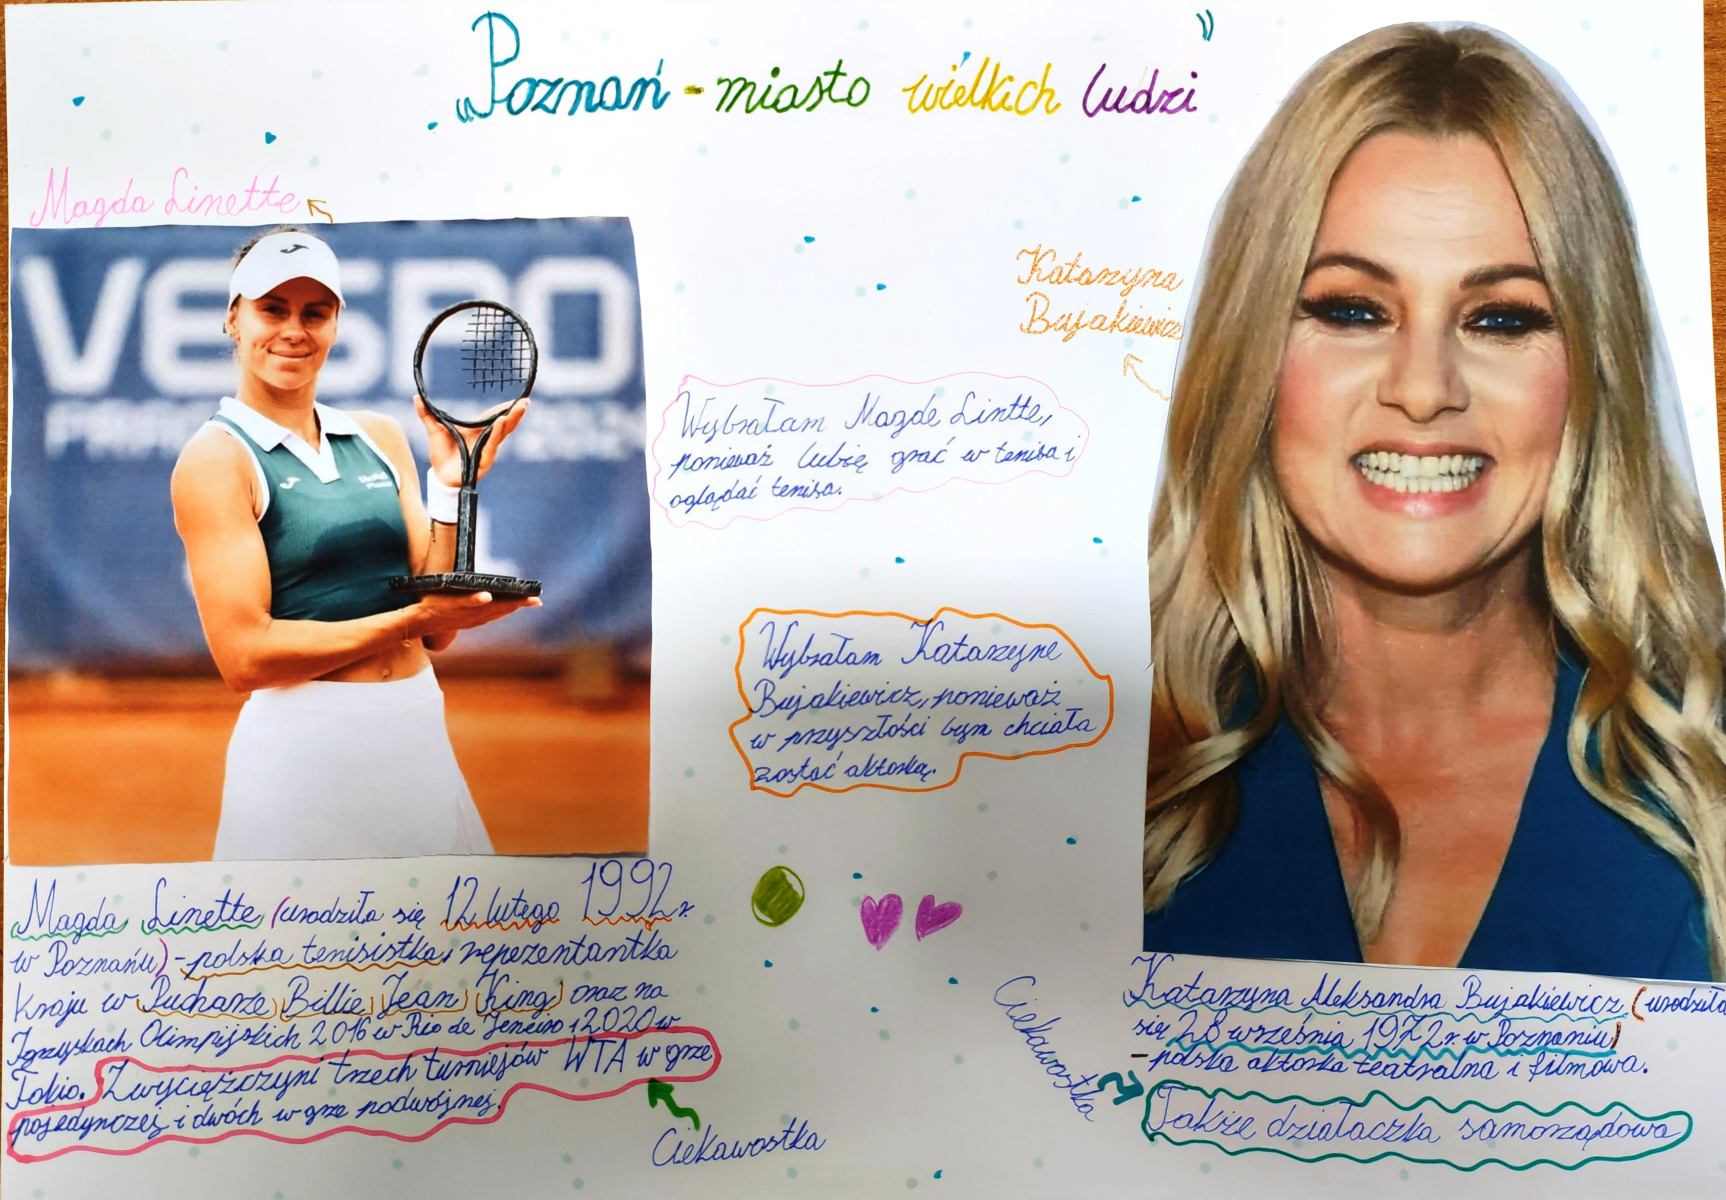 „Poznań - miasto wielkich ludzi"
Magda Linette
VESPO
Katarzyna
Bujakiewicz
Wybrałam Magde Lintte,
ponieważ lubię grać w tenisa i
oglądać tenisa.
Wybrałam Katarzyne
Bujakiewicz, ponieważ
w przyszłości bym chciała
zostać aktorką.
Magda Linette (urodziła się 12 lutego 1992 r.
w Poznańu) - polska tenisistka, reprezentantka
kraju w Pucharze Billie Jean King oraz na
Igrzyskach Olimpijskich 2016 w Rio de Jeneiro i 2020 w
Tokio. Zwyciężczyni trzech turniejów WTA w grze
pojedynczej i dwóch w grze podwójnej.
Ciekawostka
Katarzyna Aleksandra Bujakiewicz (urodziła
się 28 września 1972 r. w Poznaniu)
- polska aktorka teatralna i filmowa.
Ciekawostka
Także działaczka samorządowa